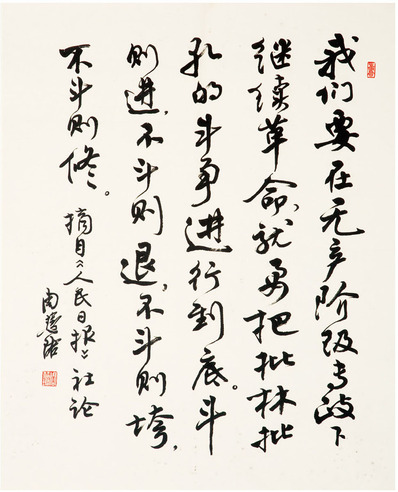 我们要在无产阶级专政下
继续革命,就要把批林批
孔的斗争进行到底。斗
则进,不斗则退,不斗则垮,
不斗则修。
摘自《人民日报》社论